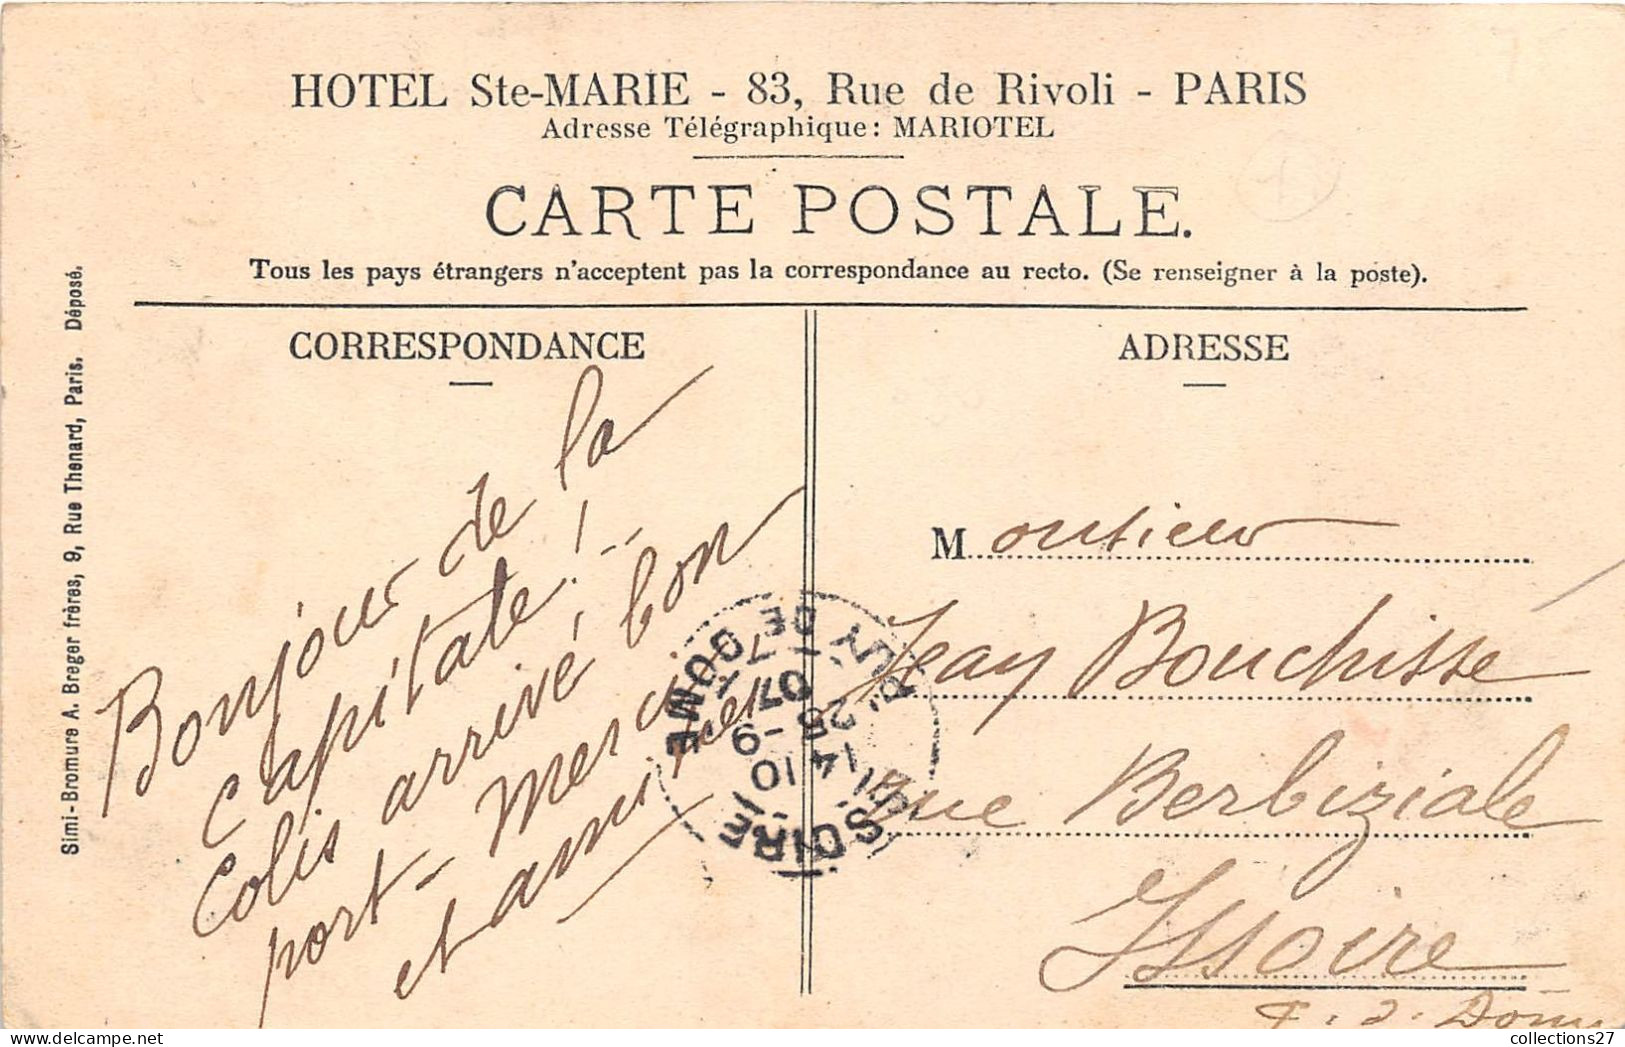 HOTEL Ste-MARIE - 83, Rue de Rivoli - PARIS
Adresse Télégraphique: MARIOTEL
CARTE POSTALE.
Tous les pays étrangers n'acceptent pas la correspondance au recto. (Se renseigner à la poste).
Simi-Bromure A. Breger frères, 9, Rue Thenard, Paris. Déposé.
CORRESPONDANCE
Bonjour de la
Capitale!
Colis arrivé bon
port - Merci
et
ADRESSE
Monsieur
Jean Bouchisse
rue Berbiziale
Issoire
P. d. Dôme
ISSOIRE
PUY DE DOME
14 10
25 -9
07
collections27